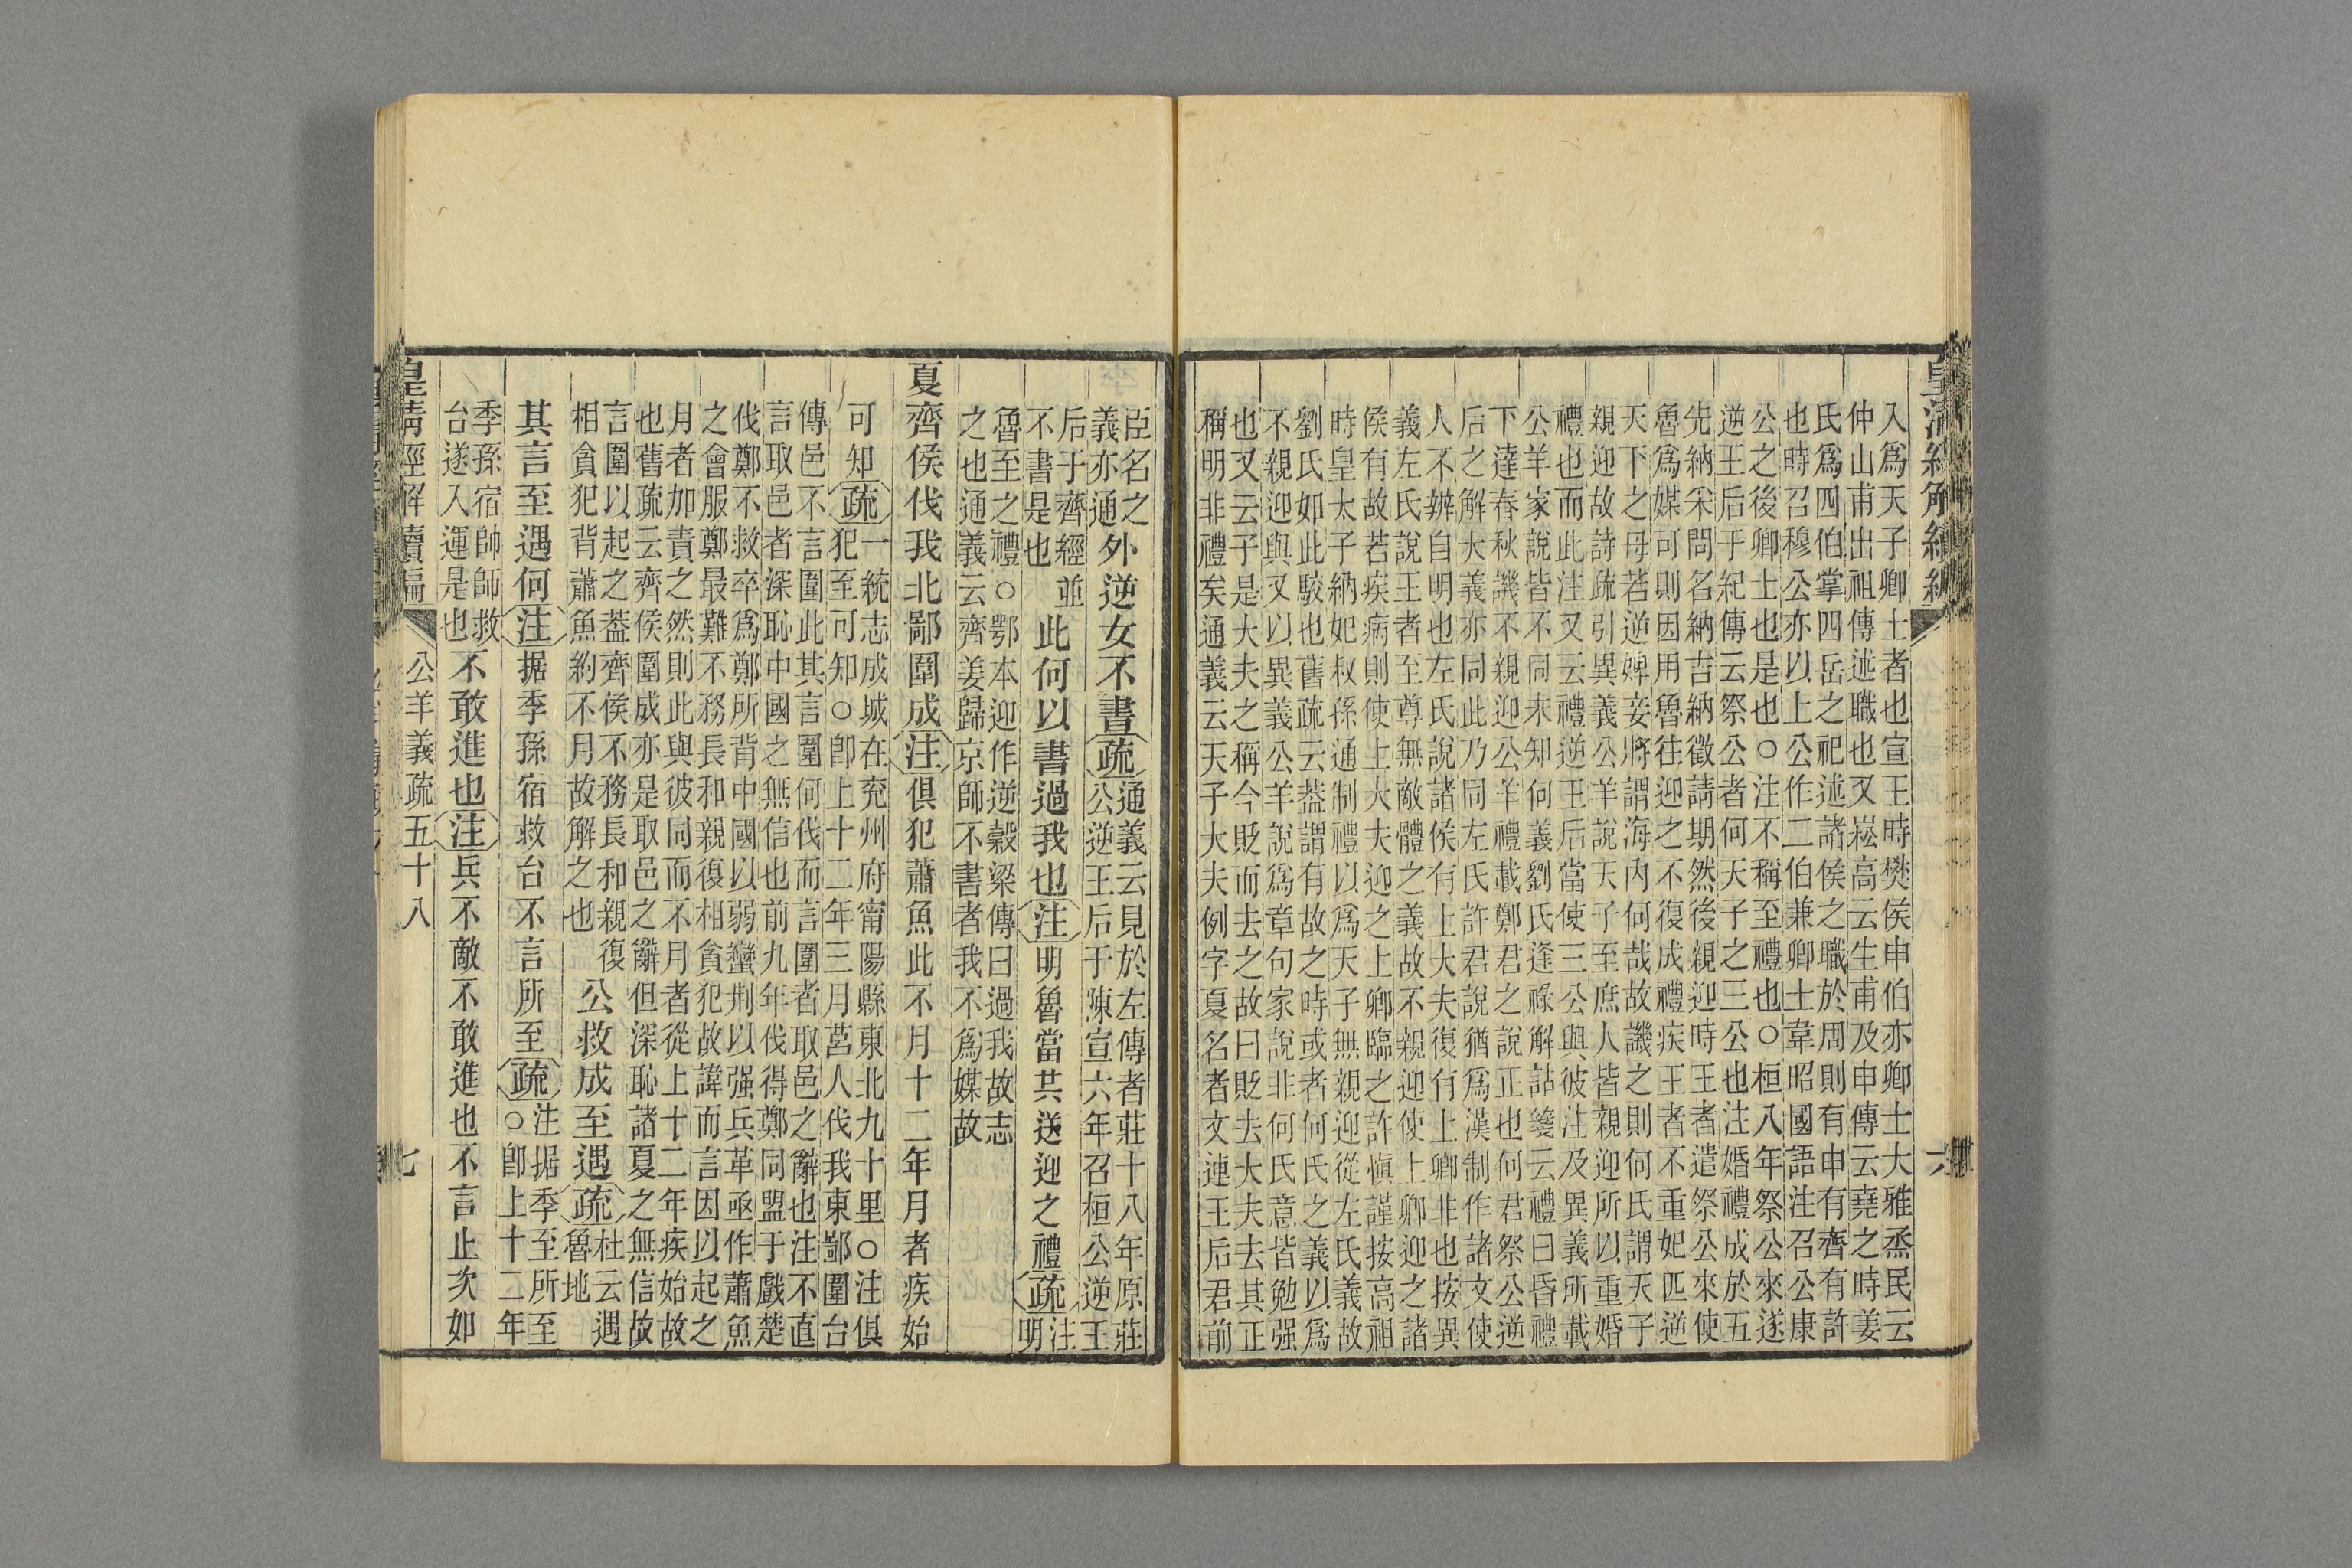 皇清經解續編
六
入爲天子卿士者也宣王時樊侯申伯亦卿士大雅烝民云
仲山甫出祖傳述職也又崧高云生甫及申傳云堯之時姜
氏爲四伯掌四岳之祀述諸侯之職於周則有申有齊有許
也時召穆公亦以上公作二伯兼卿士韋昭國語注召公康
公之後卿士也是也○注不稱至禮也○桓八年祭公來遂
逆王后于紀傳云祭公者何天子之三公也注婚禮成於五
先納采問名納吉納徵請期然後親迎時王者遣祭公來使
魯爲媒可則因用魯往迎之不復成禮疾王者不重妃匹逆
天下之母若逆婢妾將謂海內何哉故譏之則何氏謂天子
親迎故詩疏引異義公羊說天子至庶人皆親迎所以重婚
禮也而此注又云禮逆王后當使三公與彼注及異義所載
公羊家說皆不同未知何義劉氏逢祿解詁箋云禮曰昏禮
下達春秋譏不親迎公羊禮載鄭君之說正也何君祭公逆
后之解大義亦同此乃同左氏許君說猶爲漢制作諸文使
人不辨自明也左氏說諸侯有上大夫復有上卿非也按異
義左氏說王者至尊無敵體之義故不親迎使上卿迎之諸
侯有故若疾病則使上大夫迎之上卿臨之許愼謹按高祖
時皇太子納妃叔孫通制禮以爲天子無親迎從左氏義故
劉氏如此駮也舊疏云葢謂有故之時或者何氏之義以爲
不親迎與又以異義公羊說爲章句家說非何氏意皆勉强
也又云予是大夫之稱今貶而去之故曰貶去大夫去其正
稱明非禮矣通義云天子大夫例字夏名者文連王后君前
臣名之
義亦通
外逆女不書疏
通義云見於左傳者莊十八年原莊
公逆王后于陳宣六年召桓公逆王
后于齊經並
不書是也
此何以書過我也注明魯當共送迎之禮疏
注
明
魯至之禮○鄂本迎作逆穀梁傳曰過我故志
之也通義云齊姜歸京師不書者我不爲媒故
夏齊侯伐我北鄙圍成注俱犯蕭魚此不月十二年月者疾始
可知疏
一統志成城在兖州府甯陽縣東北九十里○注俱
犯至可知○卽上十二年三月莒人伐我東鄙圍台
傳邑不言圍此其言圍何伐而言圍者取邑之辭也注不直
言取邑者深恥中國之無信也前九年伐得鄭同盟于戲楚
伐鄭不救卒爲鄭所背中國以弱蠻荆以强兵革亟作蕭魚
之會服鄭最難不務長和親復相貪犯故諱而言因以起之
月者加責之然則此與彼同而不月者從上十二年疾始故
也舊疏云齊侯圍成亦是取邑之辭但深恥諸夏之無信故
言圍以起之葢齊侯不務長和親復
相貪犯背蕭魚約不月故解之也
公救成至遇疏
杜云遇
魯地
其言至遇何注据季孫宿救台不言所至疏
注据季至所至
○卽上十二年
季孫宿帥師救
台遂入運是也
不敢進也注兵不敵不敢進也不言止次如
皇清經解續編
公羊義疏五十八
七